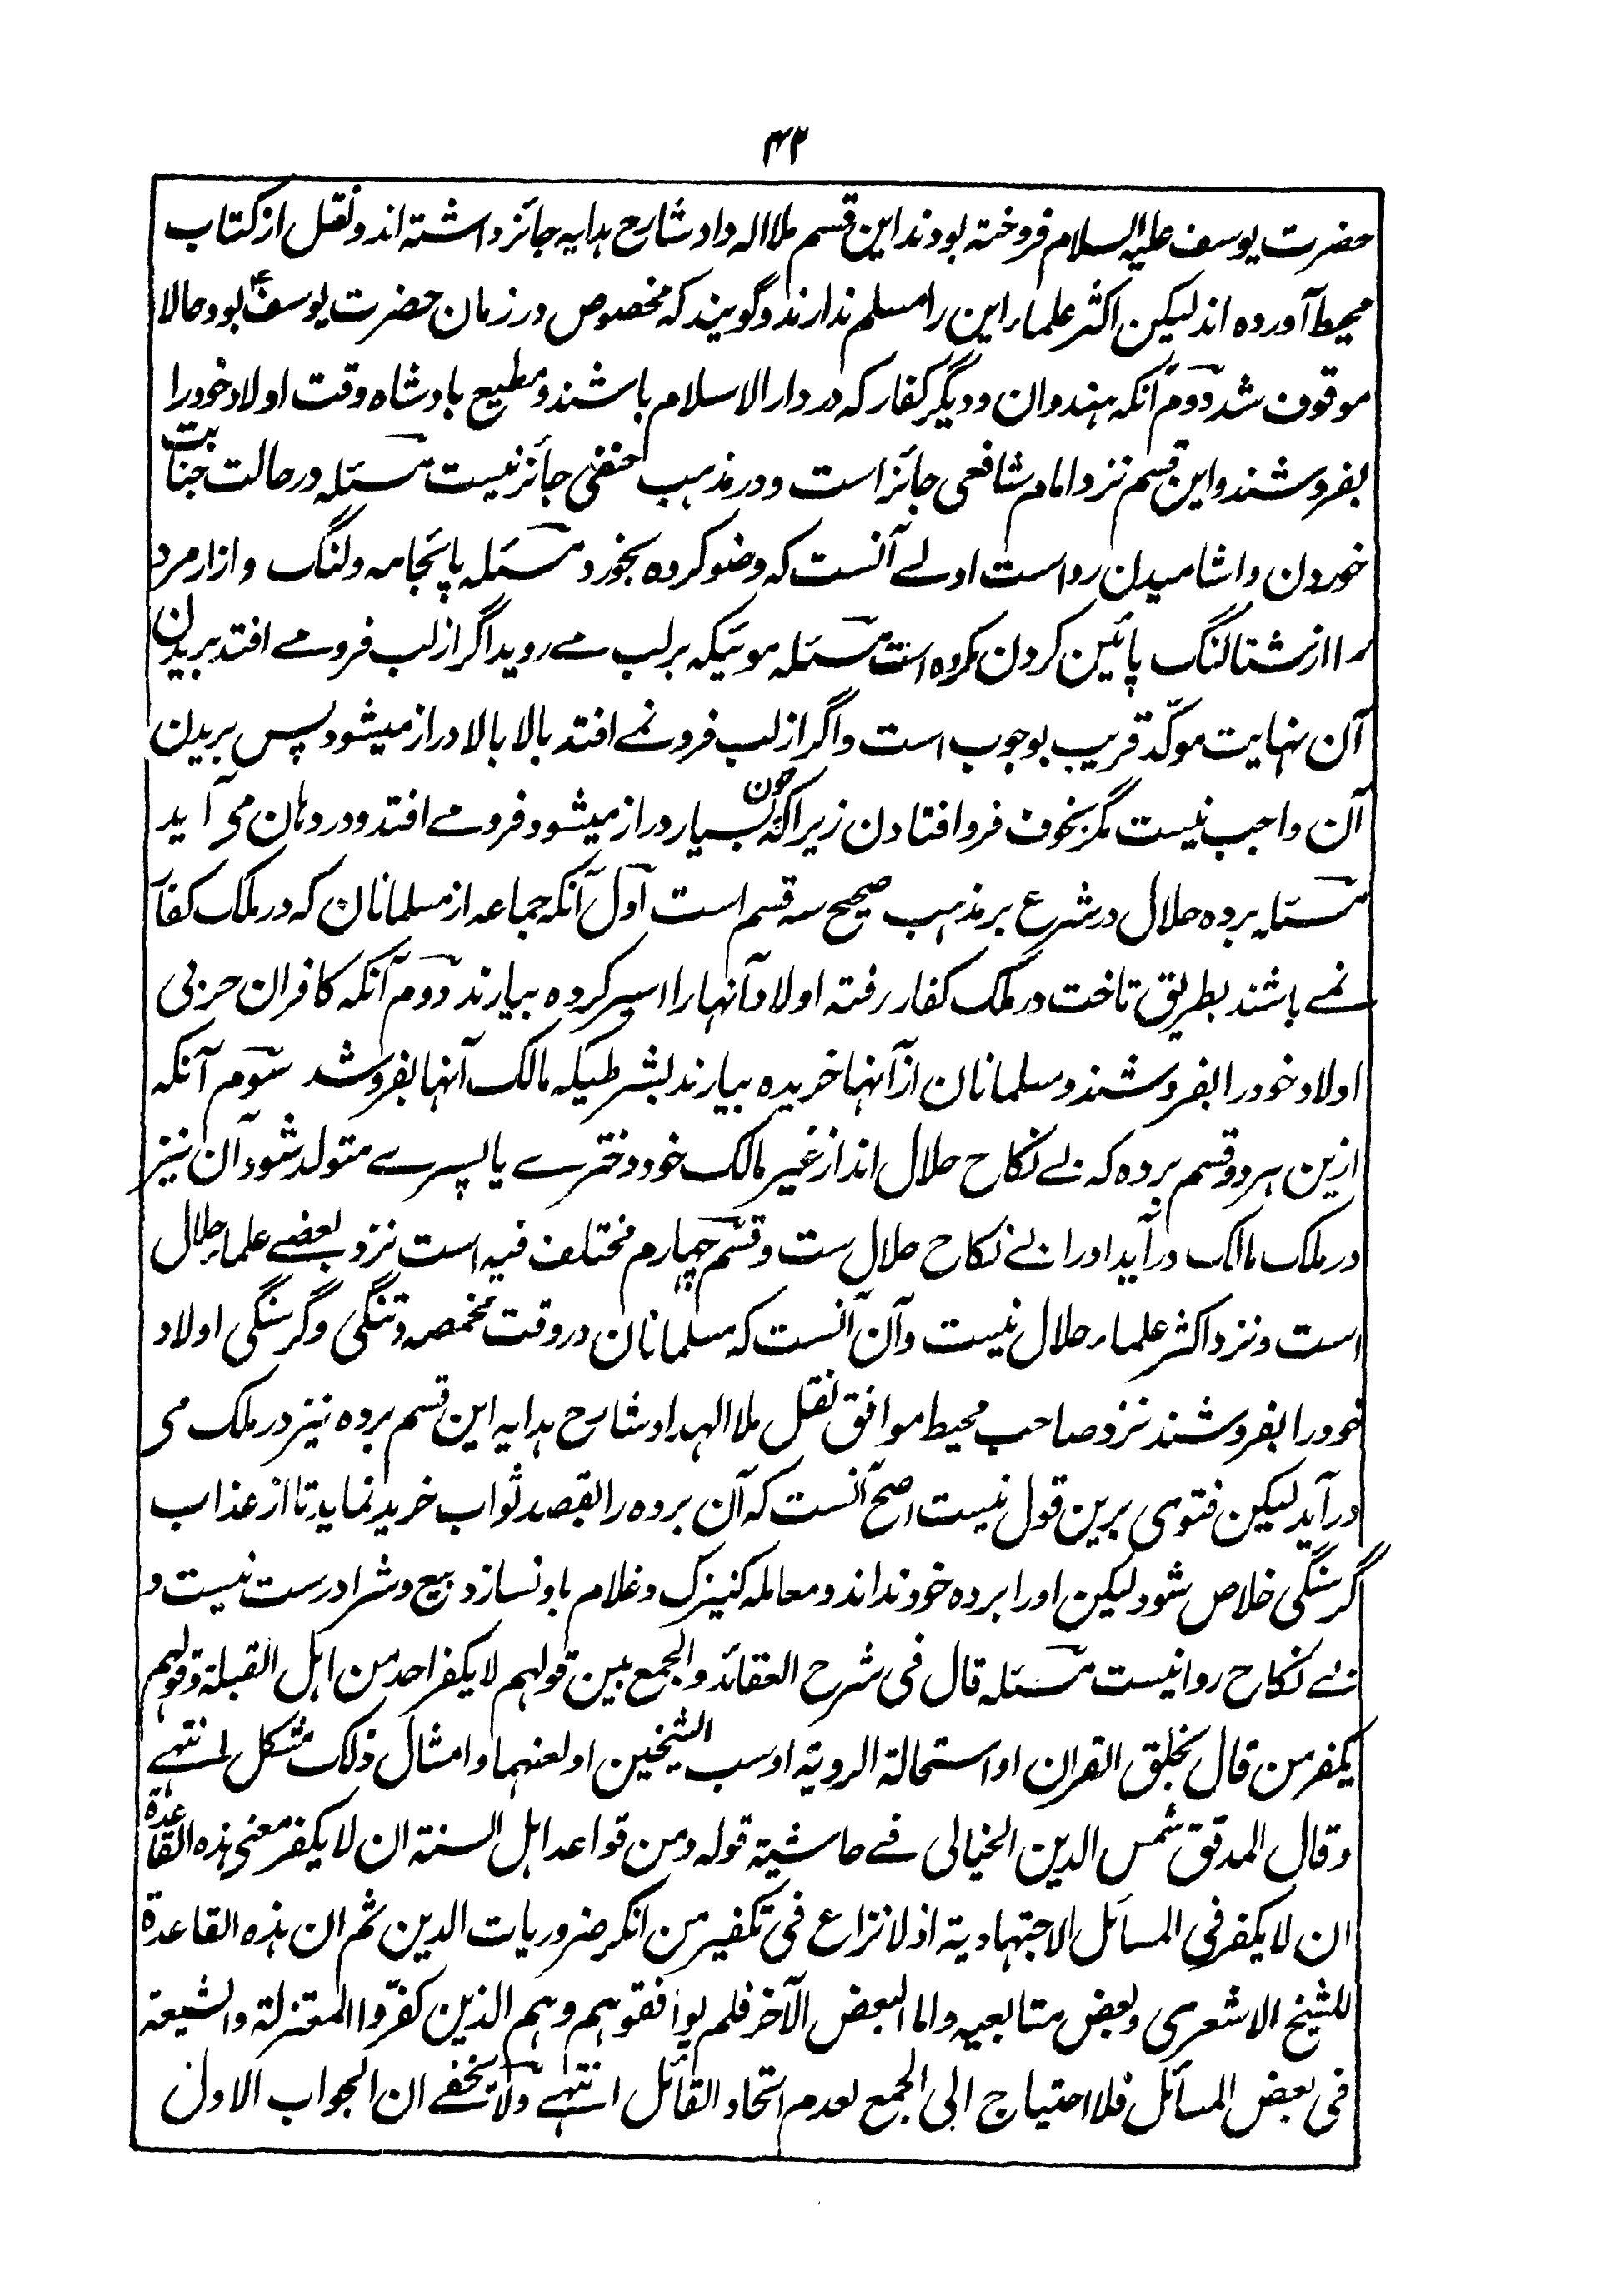 ۴۲
حضرت یوسف علیه السلام فروخته بودند این قسم ملا اله داد شارح هدایه جائز داشته اند و نقل از کتاب
محیط آورده اند لیکن اکثر علماء این را مسلم ندارند و گویند که مخصوص در زمان حضرت یوسفؑ بود حالا
موقوف شد دوم آنکه هندوان و دیگر کفار که در دار الاسلام باشند و مطیع بادشاه وقت اولاد خود را
بفروشند و این قسم نزد امام شافعی جائز است و در مذهب حنفی جائز نیست مسئله در حالت جنابت
خوردن و اشامیدن رواست اولے آنست که وضو کرده بخورد مسئله پائجامه و لنگ و ازار مرد
را از شتالنگ پائین کردن مکروه است مسئله موئیکه بر لب مے روید اگر از لب فرو مے افتد بریدن
آن نهایت موکّد قریب بوجوب است و اگر از لب فرو نمے افتد بالا بالا دراز میشود پس بریدن
آن واجب نیست مگر بخوف فرو افتادن زیراکه چون بسیار دراز میشود فرو مے افتد و در دهان می آید
مسئله برده حلال در شرع بر مذهب صحیح سه قسم است اول آنکه جماعه از مسلمانان که در ملک کفار
نمے باشند بطریق تاخت در ملک کفار رفته اولاد آنها را اسیر کرده بیارند دوم آنکه کافران حربی
اولاد خود را بفروشند و مسلمانان از آنها خریده بیارند بشرطیکه مالک آنها بفروشد سوم آنکه
ازین هر دو قسم برده که بے نکاح حلال اند از غیر مالک خود دخترے یا پسرے متولد شود آن نیز
در ملک مالک در آید او را بے نکاح حلال ست و قسم چهارم مختلف فیه است نزد بعضے علماء حلال
است و نزد اکثر علماء حلال نیست و آن آنست که مسلمانان در وقت مخمصه و تنگی و گرسنگی اولاد
خود را بفروشند نزد صاحب محیط موافق نقل ملا الهداد شارح هدایه این قسم برده نیز در ملک می
در آید لیکن فتوی برین قول نیست اصح آنست که آن برده را بقصد ثواب خرید نماید تا از عذاب
گرسنگی خلاص شود لیکن او را برده خود نداند و معامله کنیزک و غلام باو نسازد و بیع و شرا درست نیست و
بے نکاح روا نیست مسئله قال فی شرح العقائد و الجمع بین قولهم لا یکفر احد من اهل القبلة و قولهم
یکفر من قال بخلق القران او استحالة الرویة او سب الشیخین او لعنهما و امثال ذلک مشکل انتهے
و قال المدقق شمس الدین الخیالی فے حاشیة قوله و من قواعد اهل السنة ان لا یکفر معنی هذه القاعدة
ان لا یکفر فی المسائل الاجتهادیة اذ لا نزاع فی تکفیر من انکر ضروریات الدین ثم ان هذه القاعدة
للشیخ الاشعری و بعض متابعیه و اما البعض الآخر فلم یوافقوهم و هم الذین کفّروا المعتزلة و الشیعة
فی بعض المسائل فلا احتیاج الی الجمع لعدم اتحاد القائل انتهے و لا یخفے ان الجواب الاول